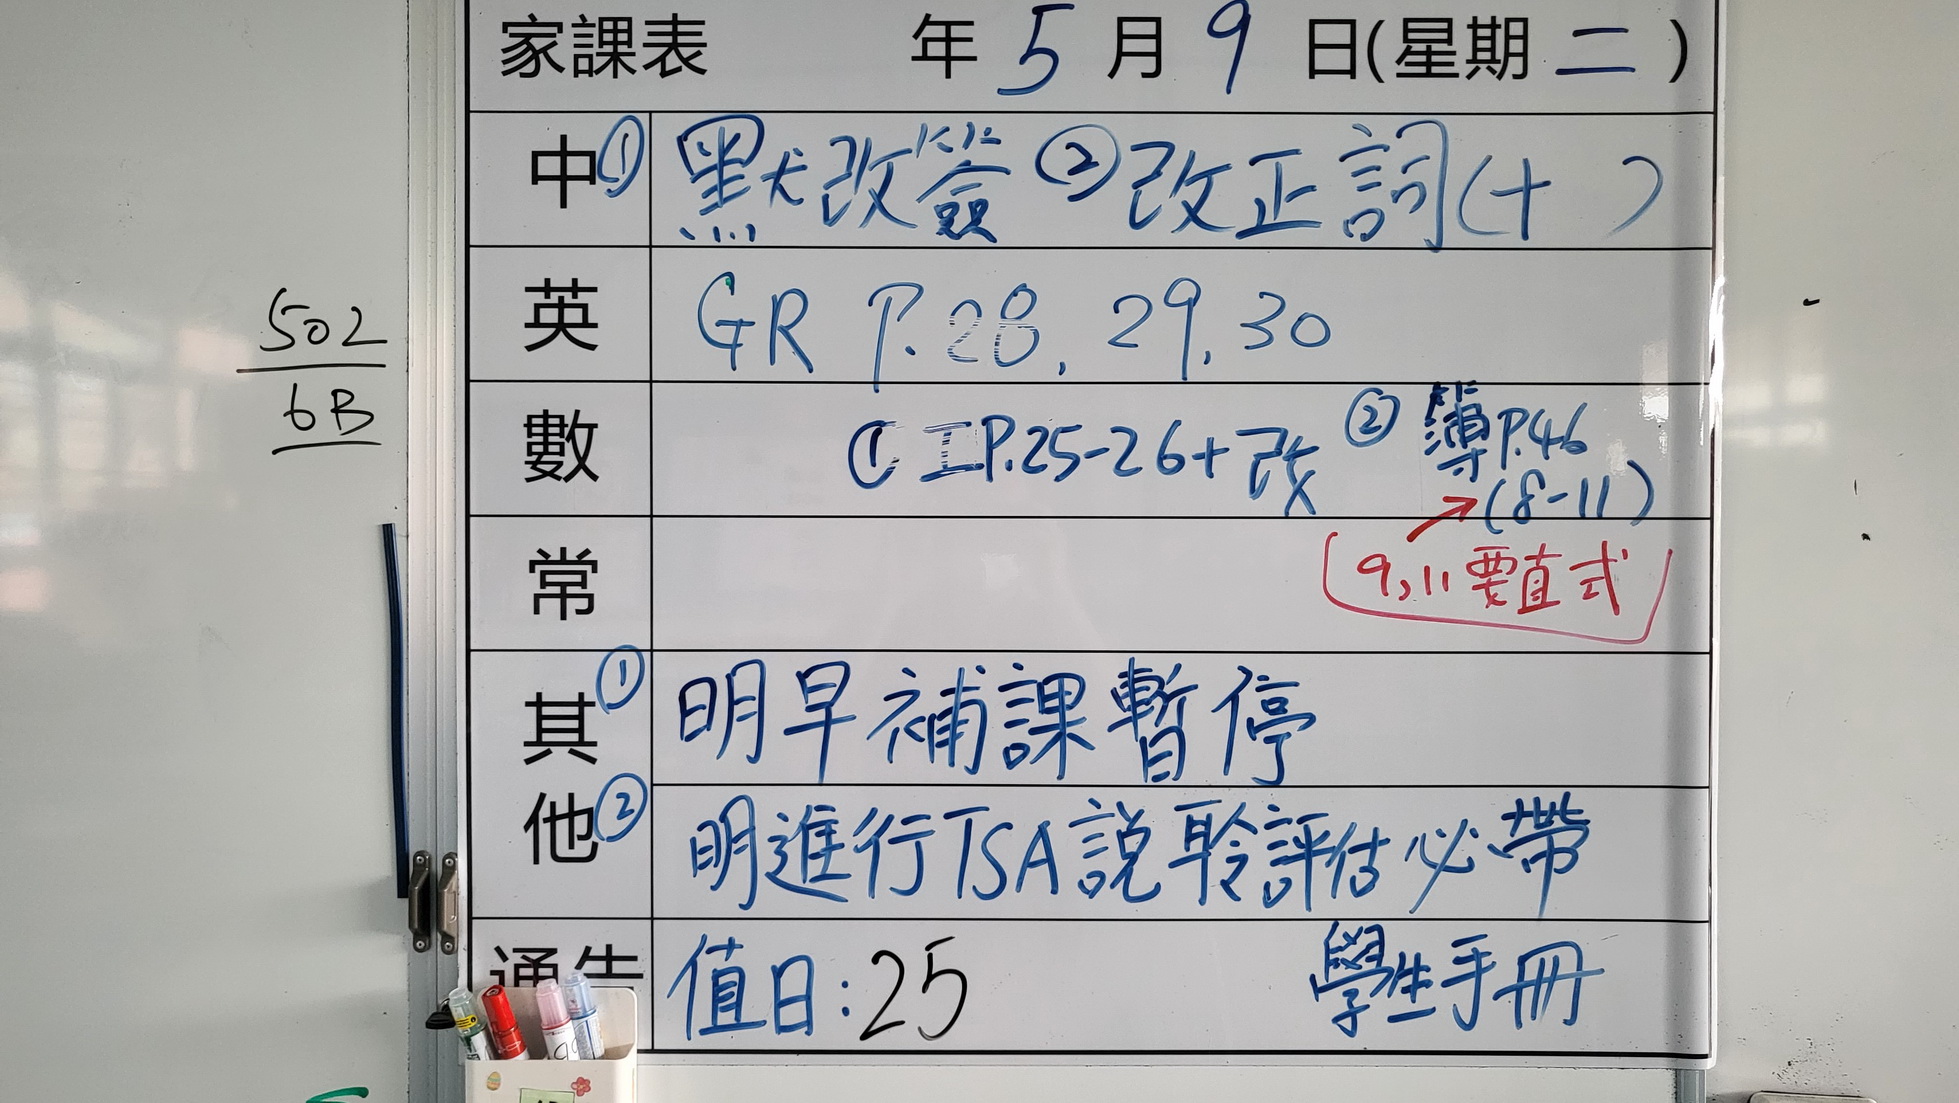 家課表 年 5 月 9 日(星期 二 )
中 ① 默改簽 ② 改正詞(十 )
英 GR P.28, 29, 30
數 ① 工P.25-26+改 ② 簿P.46
(8-11)
常
9, 11 要直式
其他
① 明早補課暫停
② 明進行TSA說聆評估必帶
學生手冊
通告 值日:25
502
6B